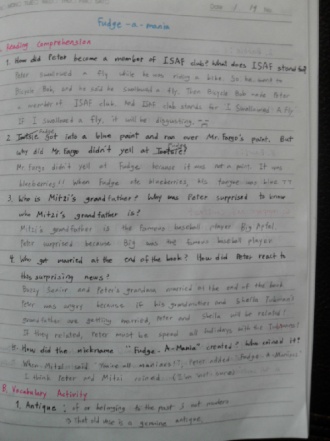 Fudge-a-mania
Reading Comprehension
1. How did Peter become a member of ISAF club? What does ISAF stand for?
Peter swallowed a fly while he was riding a bike. So, he went to
Bicycle Bob, and he said he swallowed a fly. Then Bicycle Bob made Peter
a member of ISAF club. And ISAF club stands for I Swallowed A Fly
If I swallowed a fly, it will be disgusting.
2. got into blue paint and ran over Mr. Fargo's paint. But
why did Mr. Fargo didn't yell at
Mr. Fargo didn't yell at Fudge because it was not a paint. It was
blueberries!! When Fudge ate blueberries, his tongue was blue
3. Who is Mitzi's grandfather? Why was Peter surprised to know
who Mitzi's grandfather is?
Mitzi's grandfather is the famous baseball player Big Apfel.
Peter surprised because Big was the famous baseball player.
4. Who got married at the end of the book? How did Peter react to
this surprising news?
Buzzy Senior and Peter's grandma married at the end of the book.
Peter was angry because if his grandmother and Sheila Tubman's
grandfather are getting married, Peter and Sheila will be related!
If they related, Peter must be spend all holidays with the Tubmans!
How did the nickname "Fudge-A-Mania" created? Who coined it?
When Mitzi said
I think Peter and Mitzi coined
B. Vocabulary Activity
1. Antique : of or belonging to the past ; not modern
That old vase is a genuine antique.